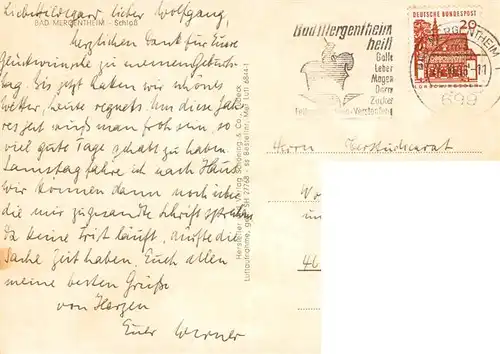 Liebe Hildegard, lieber Wolfgang,
BAD MERGENTHEIM - Schloß
herzlichen Dank für Eure
Glückwünsche zu meinem Geburts-
tag. Bis jetzt haben wir schönes
Wetter, heute regnets. Um diese Jah-
reszeit muß man froh sein, so
viel gute Tage gehabt zu haben.
Samstag fahre ich nach Haus.
Wir können dann noch über
die mir zugesandte Schrift sprechen.
Da keine Frist läuft, dürfte die
Sache Zeit haben. Euch allen
meine besten Grüße
von Herzen
Euer Werner
Verlag Schöning & Co., Lübeck
Luftaufnahme
Bad Mergentheim
heilt
Galle
Leber
Magen
Darm
Zucker
DEUTSCHE BUNDESPOST
20
MERGENTHEIM
11
699
Herrn